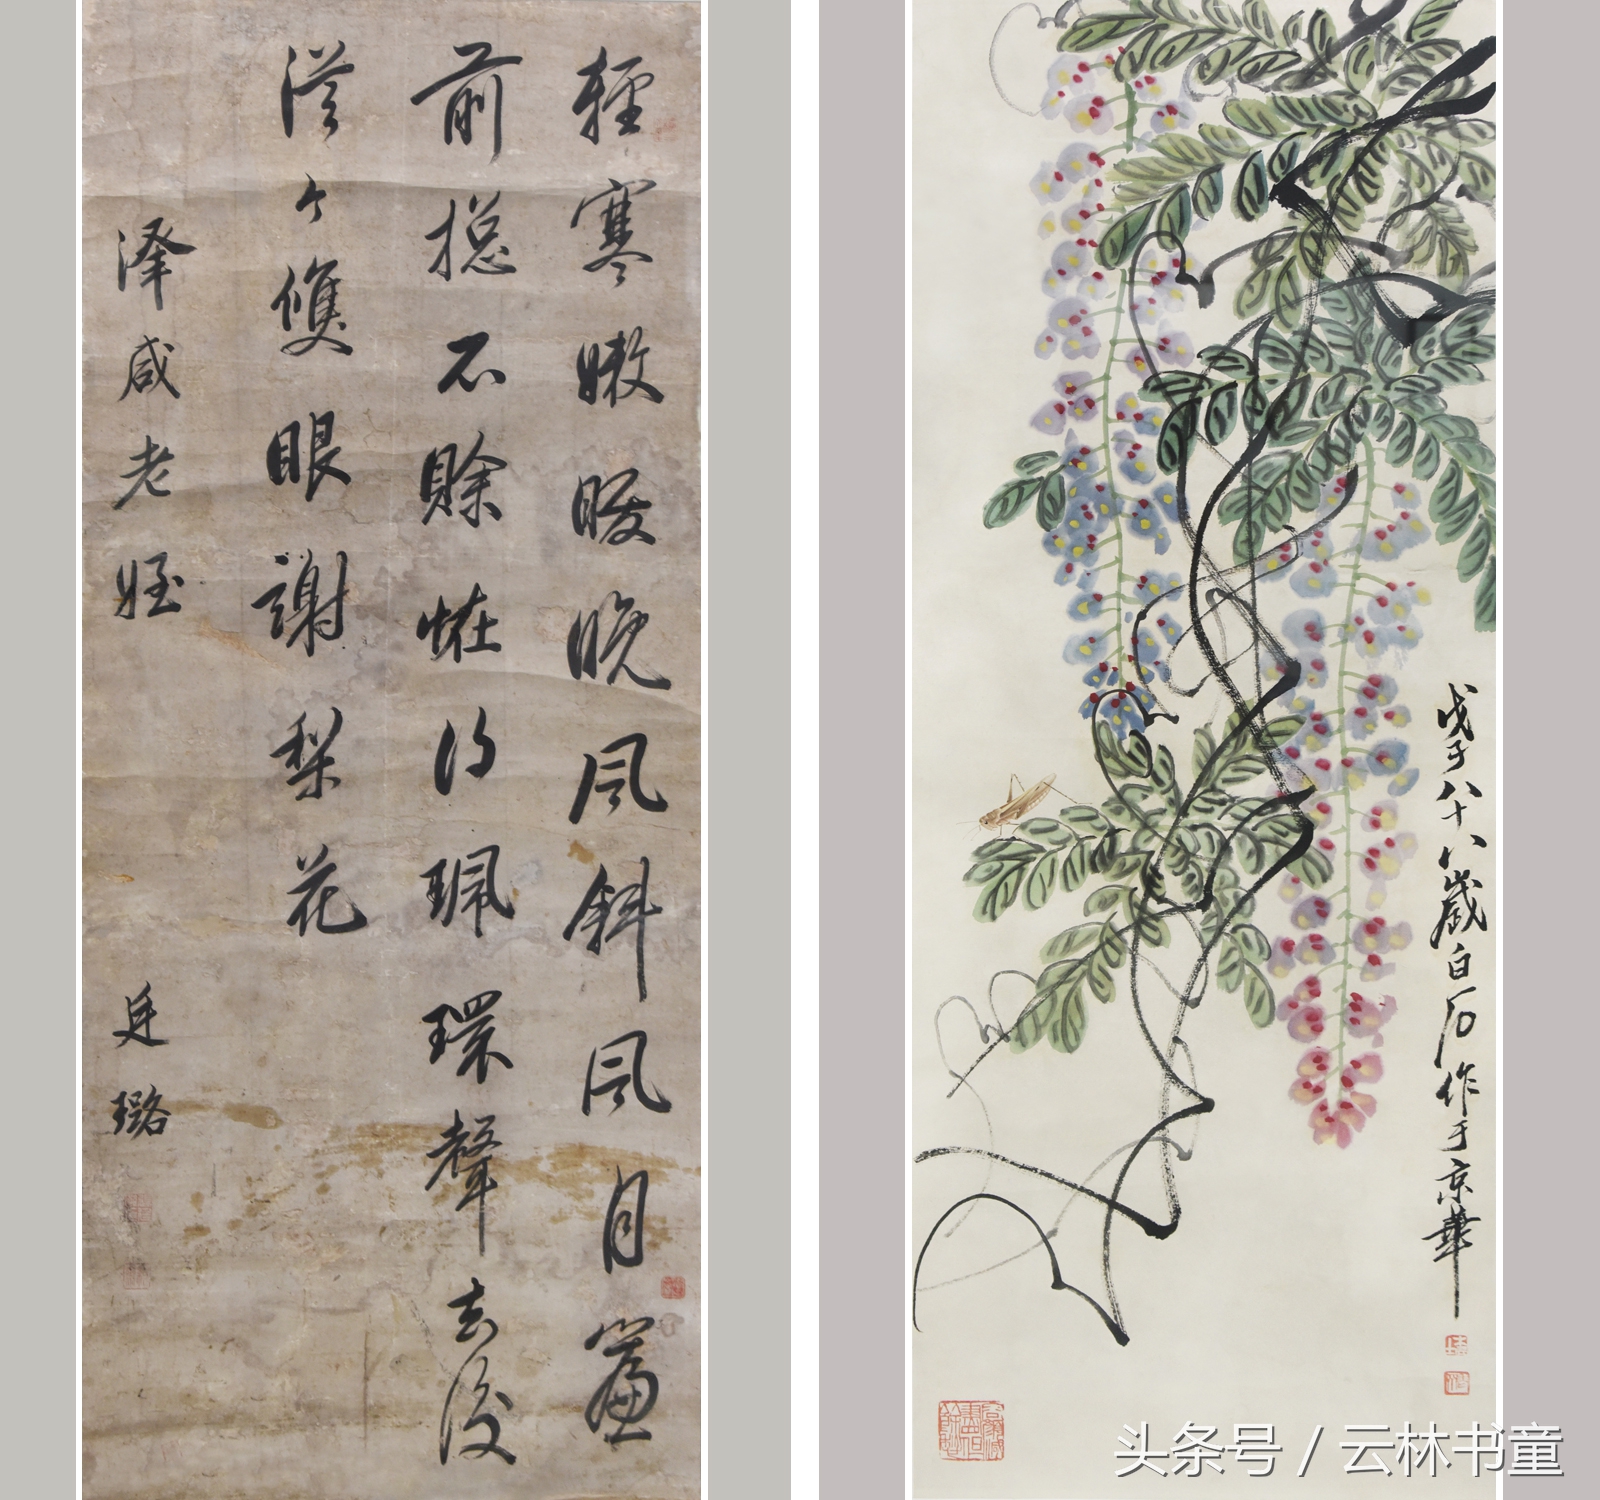 輕寒嫩暖晚風斜風月簾
前揔不賒恠得珮環聲去後
雙眼謝梨花
澤咸老姪 廷璐
戊子八十八歲白石作于京華
头条号 / 云林书童